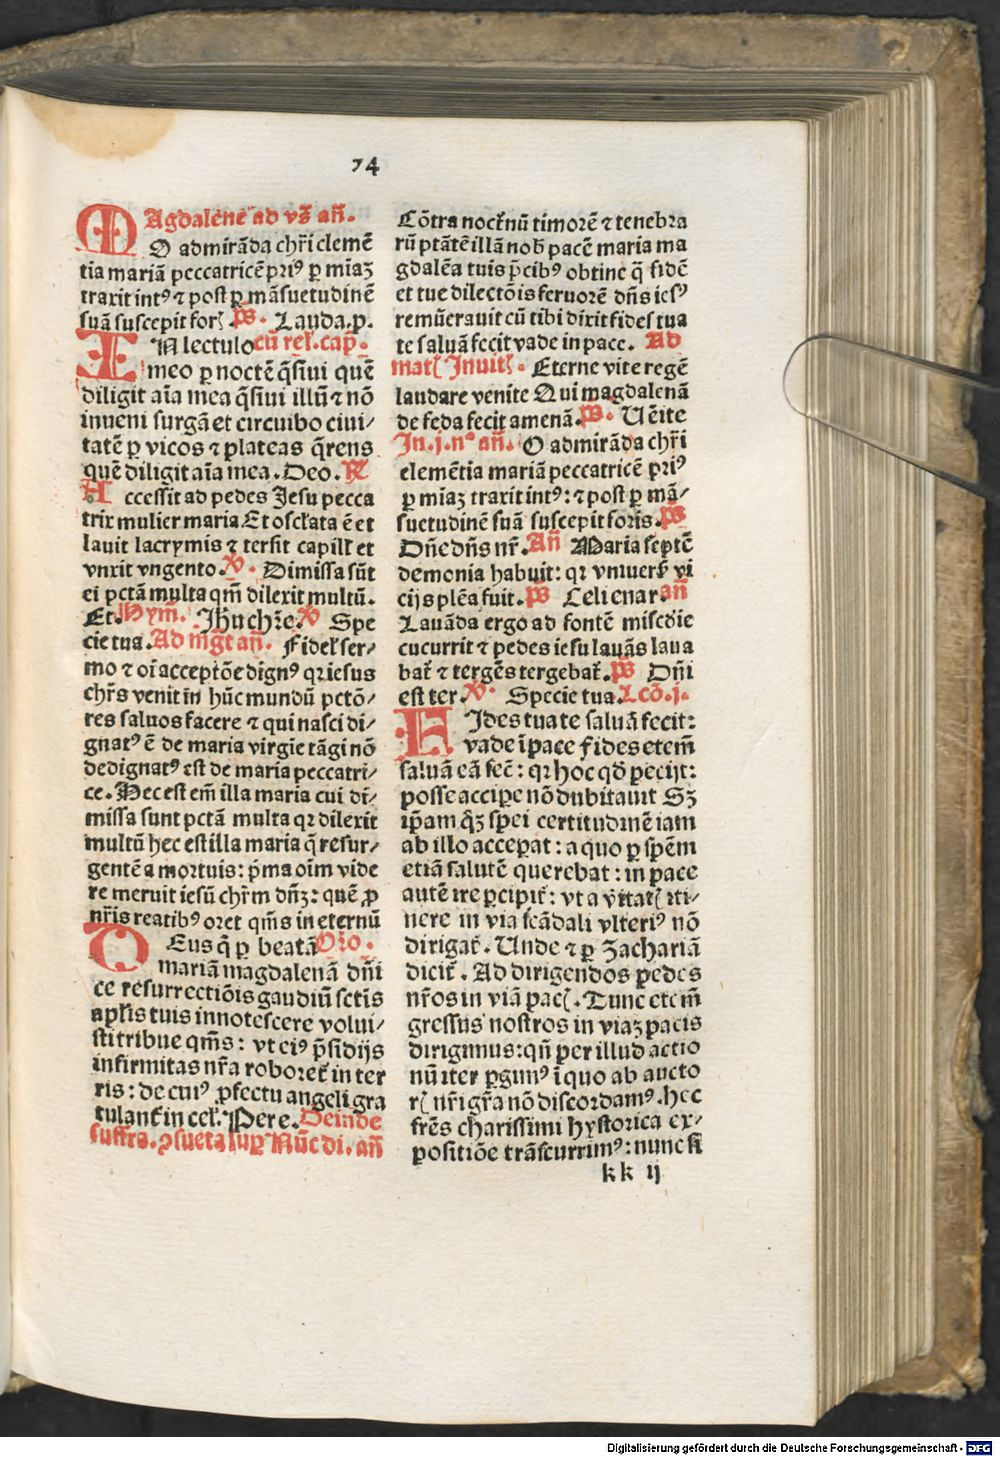 74
Magdalene᷑ ad vs̄ an̄.
O admirāda chr̄i clemē
tia mariā peccatricē priꝰ ꝑ mīaꝫ
traxit intꝰ ⁊ post ꝑ māsuetudinē
suā suscepit for. ps̄. Lauda.p.
IN lectulo cū rel'.cap̄.
meo ꝑ noctē q̄siui quē
diligit aīa mea q̄siui illū ⁊ nō
inueni surgā et circuibo ciui/
tatē ꝑ vicos ⁊ plateas q̄rens
quē diligit aīa mea. Deo. R̄
Accessit ad pedes Jesu pecca
trix mulier maria Et oscl'ata ē et
lauit lacrymis ⁊ tersit capill' et
vnxit vngento. v̄. Dimissa sūt
ei pctā multa qm̄ dilexit multū.
Et. Hym̄. Jhū chr̄e. v̄ Spe
cie tua. Ad mḡt an̄. Fidel' ser-
mo ⁊ oī acceptōe dignꝰ qꝛ iesus
chr̄s venit in hūc mundū pctō/
res saluos facere ⁊ qui nasci di/
gnatꝰ ē de maria virgie tāgi nō
dedignatꝰ est de maria peccatri/
ce. Hec est em̄ illa maria cui di/
missa sunt pctā multa qꝛ dilexit
multū hec est illa maria q̄ resur/
gentē a mortuis: p̄ma oīm vide
re meruit iesū chr̄m dn̄ꝫ: quē ꝓ
nr̄is reatibꝰ oret qm̄s in eternū
DEus q̄ ꝑ beatā Oro.
mariā magdalenā dn̄i
ce resurrectiōis gaudiū sctīs
apl'is tuis innotescere volui/
sti tribue qm̄s: vt eiꝰ p̄sidijs
infirmitas nr̄a roboret̄ in ter
ris: de cuiꝰ ꝓfectu angeli gra
tulant̄ in cel'. Per e. Deinde
suffra. ꝯsueta sup Nūc di. an̄
Cōtra noct'nū timorē ⁊ tenebra
rū ptātē illā nob̄ pacē maria ma
gdalēa tuis p̄cibꝰ obtine q̄ fidē
et tue dilectōis feruorē dn̄s iesꝰ
remūerauit cū tibi dixit fides tua
te saluā fecit vade in pace. Ad
mat Inuit. Eterne vite regē
laudare venite Qui magdalenā
de feda fecit amenā. ps̄. Uēite
In.j.nº an̄. O admirāda chr̄i
clemētia mariā peccatricē priꝰ
ꝑ mīaꝫ traxit intꝰ: ⁊ post ꝑ mā/
suetudinē suā suscepit foris. ps̄
Dn̄e dn̄s nr̄. An̄ Maria septē
demonia habuit: qꝛ vniuers̄ vi
cijs plēa fuit. ps̄ Celi enar. an̄
Lauāda ergo ad fontē mis̄cdie
cucurrit ⁊ pedes iesu lauās laua
bat̄ ⁊ tergēs tergebat̄. ps̄ Dn̄i
est ter. v̄. Specie tua. Lcō.j.
FIdes tua te saluā fecit:
vade ī pace fides etem̄
saluā eā fec̄: qꝛ hoc qd̄ peciit:
posse accipe nō dubitauit Sꝫ
ip̄am q̄ꝫ spei certitudinē iam
ab illo acceꝑat: a quo ꝑ spēm
etiā salutē querebat: in pace
autē ire ꝑcipit̄: vt a v̄itat iti/
nere in via scādali vlteriꝰ nō
dirigat̄. Unde ⁊ ꝑ Zachariā
dicit̄. Ad dirigendos pedes
nr̄os in viā pac. Tunc etem̄
gressus nostros in viaꝫ pacis
dirigimus: qn̄ per illud actio
nū iter ꝑgimꝰ ī quo ab aucto
r nr̄i gr̄a nō discordamꝰ. hec
fr̄es charissimi hystorica ex/
positiōe trāscurrimꝰ: nunc si
kk ij
Digitalisierung gefördert durch die Deutsche Forschungsgemeinschaft - DFG